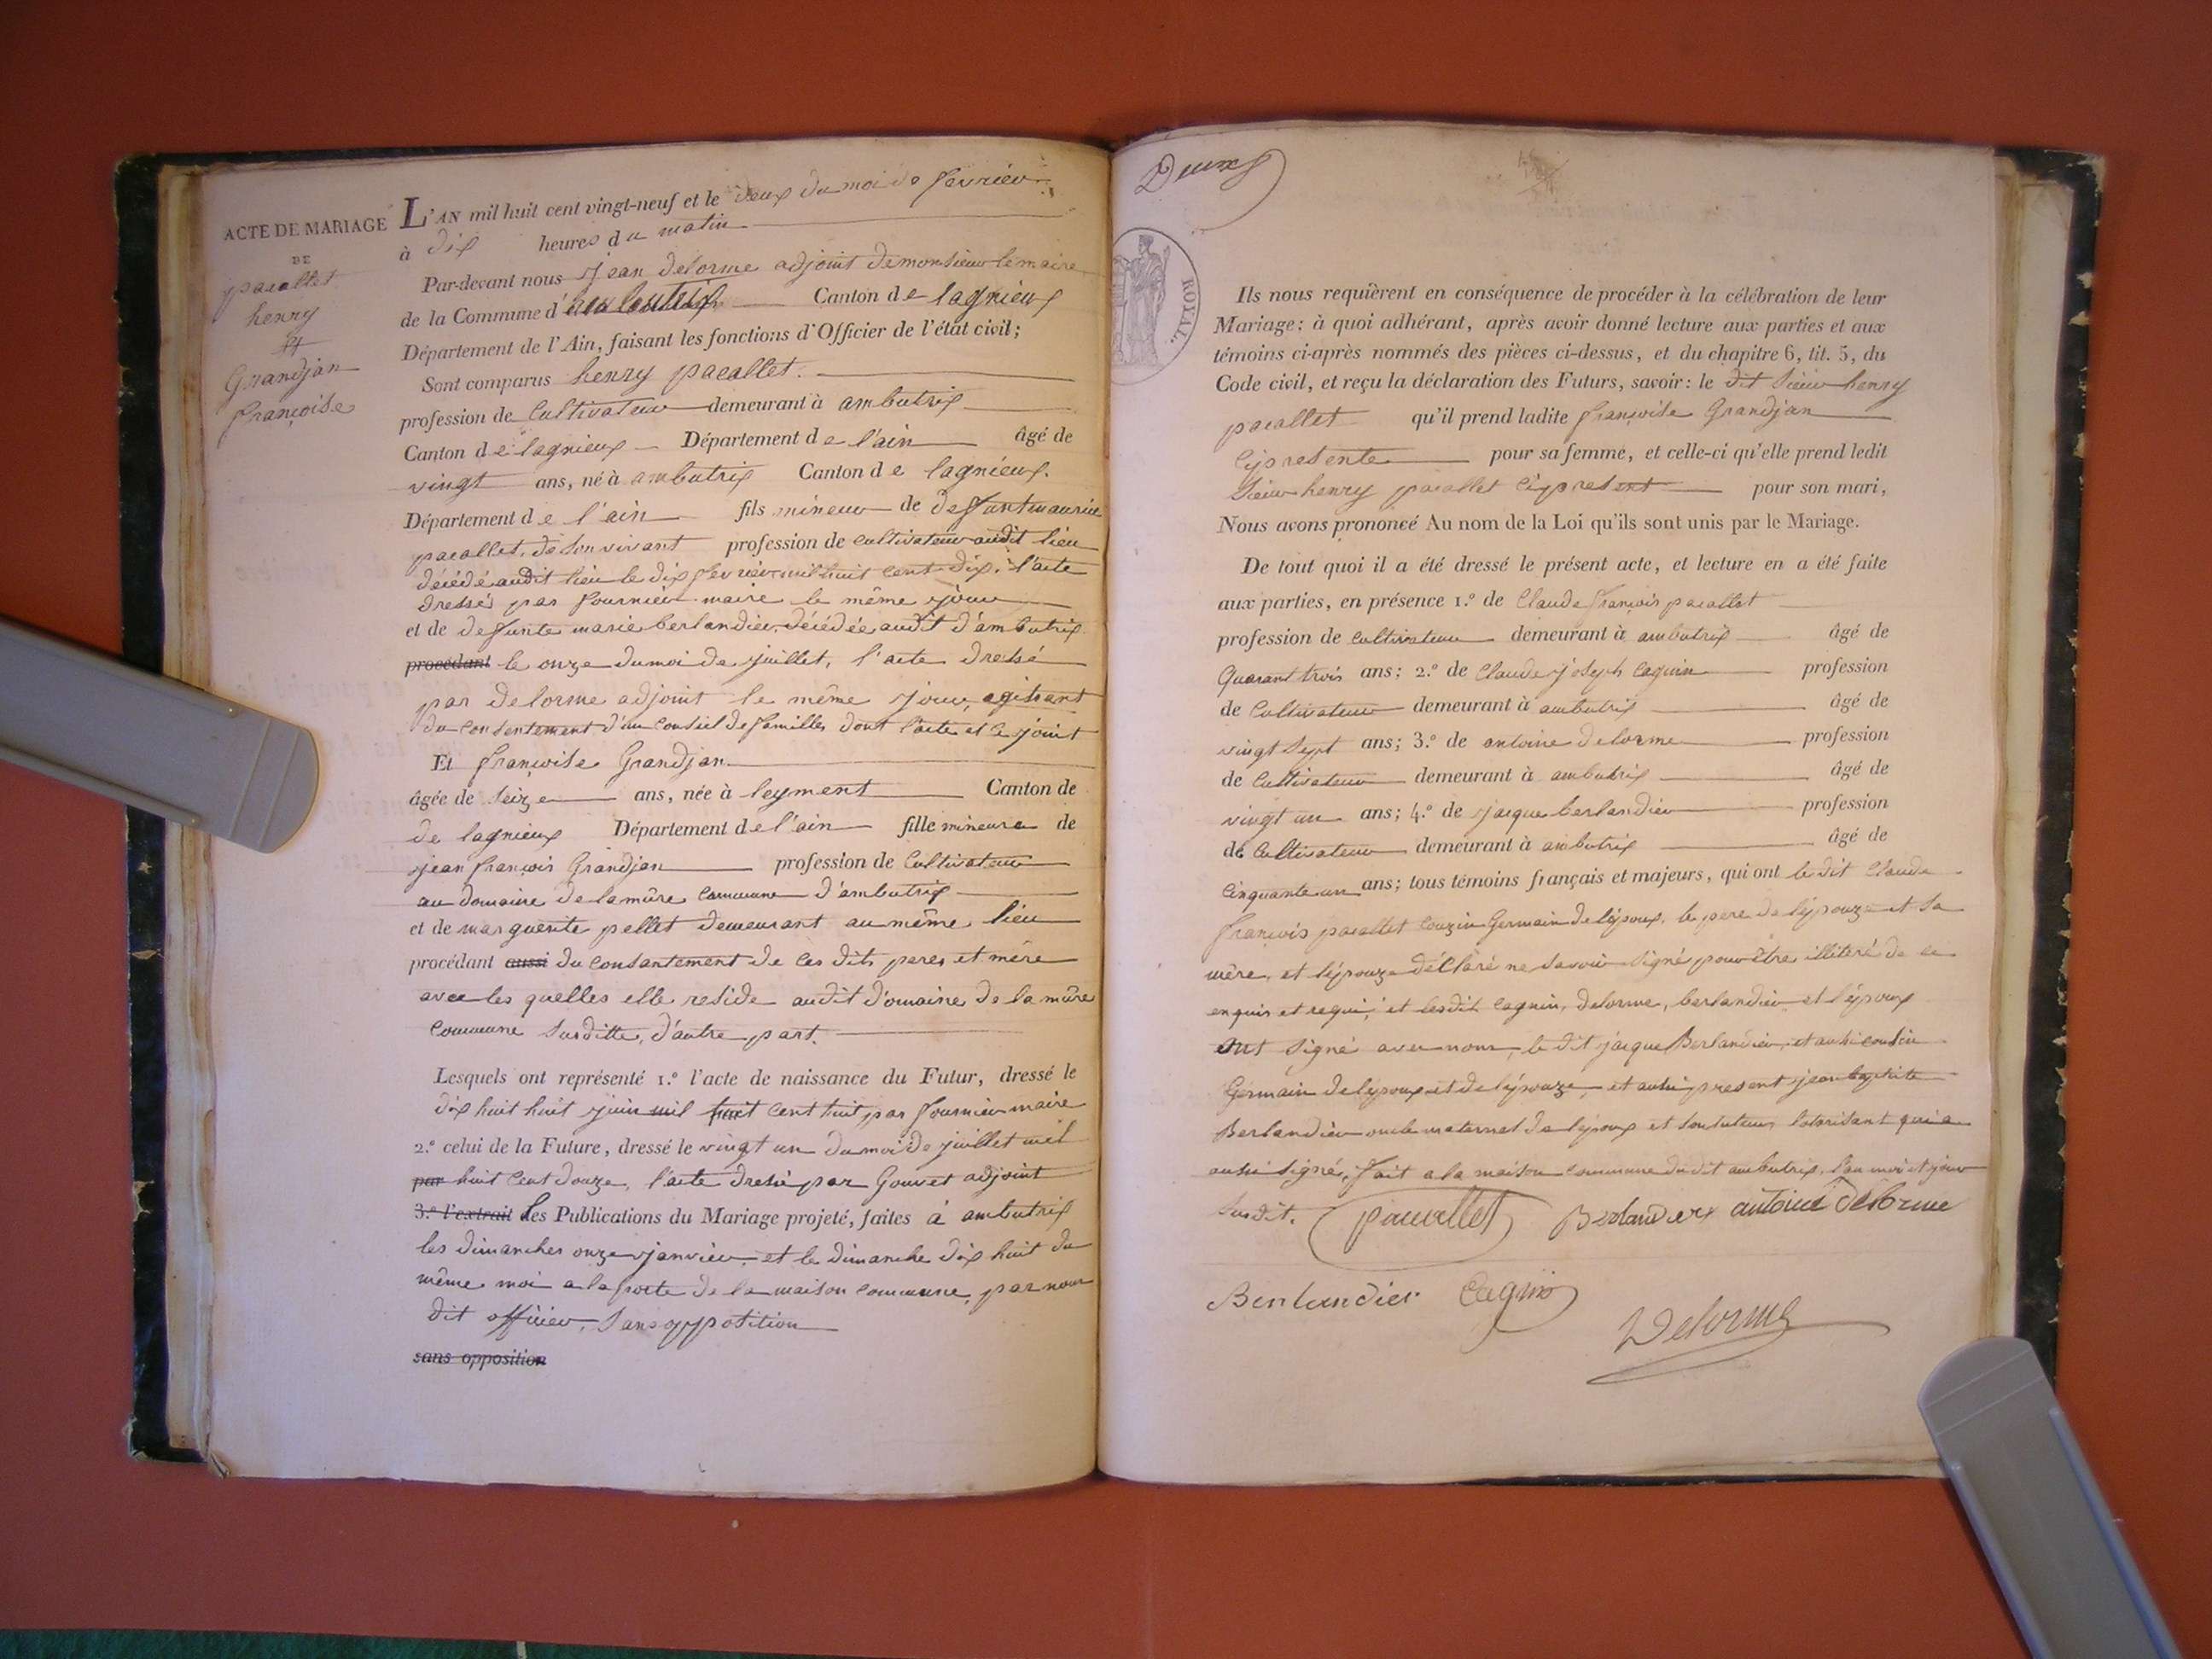 ACTE DE MARIAGE
DE
pacallet
henry
et
Grandjan
françoise
L'AN mil huit cent vingt-neuf et le deux du moi de fevrier
à dix heures du matin
Par-devant nous jean delorme adjoint de monsieur le maire
de la Commune d' Canton de lagnieux
Département de l'Ain, faisant les fonctions d'Officier de l'état civil;
Sont comparus henry pacallet.
profession de Cultivateur demeurant à ambutrix
Canton de lagnieux Département de l'ain âgé de
vingt ans, né à ambutrix Canton de lagnieux.
Département de l'ain fils mineur de deffunt maurice
pacallet, de son vivant profession de cultivateur audit lieu
décédé audit lieu le dix fevrier mil huit cent dix, l'acte
dressés par fournier maire le même jour
et de defunte marie berlandier, décédée audit d'ambutrix
procédant le onze du moi de juillet, l'acte dressé
par delorme adjoint le même jour, agissant
du consentement d'un conseil de familles dont l'acte et ce joint
Et françoise Grandjan
âgée de seize ans, née à leyment Canton de
de lagnieux Département de l'ain fille mineure de
jean françois Grandjan profession de Cultivateur
au domaine de la mûre commune d'ambutrix
et de marguerite pellet demeurant au même lieu
procédant aussi du consantement de ces dits peres et mére
avec les quelles elle reside audit domaine de la mûre
Commune susditte, d'autre part.
Lesquels ont représenté 1.° l'acte de naissance du Futur, dressé le
dix huit huit juin mil huit cent huit par fournier maire
2.° celui de la Future, dressé le vingt un du moi de juillet mil
par huit cent douze, l'acte dressé par Gouvet adjoint
3.° l'extrait des Publications du Mariage projeté, faites à ambutrix
les dimanches onze janvier et le dimanche dix huit du
même moi a la porte de la maison commune, par nous
dit officier, sans opposition
sans opposition
Deux
ROYAL.
Ils nous requièrent en conséquence de procéder à la célébration de leur
Mariage: à quoi adhérant, après avoir donné lecture aux parties et aux
témoins ci-après nommés des pièces ci-dessus, et du chapitre 6, tit. 5, du
Code civil, et reçu la déclaration des Futurs, savoir: le dit sieur henry
pacallet qu'il prend ladite françoise Grandjan
cy presente pour sa femme, et celle-ci qu'elle prend ledit
sieur henry pacallet cy present pour son mari,
Nous avons prononcé Au nom de la Loi qu'ils sont unis par le Mariage.
De tout quoi il a été dressé le présent acte, et lecture en a été faite
aux parties, en présence 1.° de Claude françois pacallet
profession de cultivateur demeurant à ambutrix âgé de
Quarant trois ans; 2.° de Claude joseph Cagnin profession
de Cultivateur demeurant à ambutrix âgé de
vingt sept ans; 3.° de antoine delorme profession
de Cultivateur demeurant à ambutrix âgé de
vingt un ans; 4.° de jacque berlandier profession
de Cultivateur demeurant à ambutrix âgé de
Cinquante un ans; tous témoins français et majeurs, qui ont le dit Claude
françois pacallet couzin Germain de l'époux, le pere de l'épouze et sa
mère, et l'épouze déclaré ne savoir signé pour être illiteré de ce
enquis et requi, et lesdit Cagnin, delorme, berlandier et l'époux
ont signé avec nous, le dit jacque Berlandier, et aussi cousin
Germain de l'époux et de l'épouze, et aussi present jean baptiste
Berlandier oncle maternel de l'époux et son tuteur l'otorisant qui a
aussi signé, fait a la maison commune du dit ambutrix, l'an moi et jour
susdit. pacallet Berlandier antoine delorme
Berlandier Cagnin
Delorme